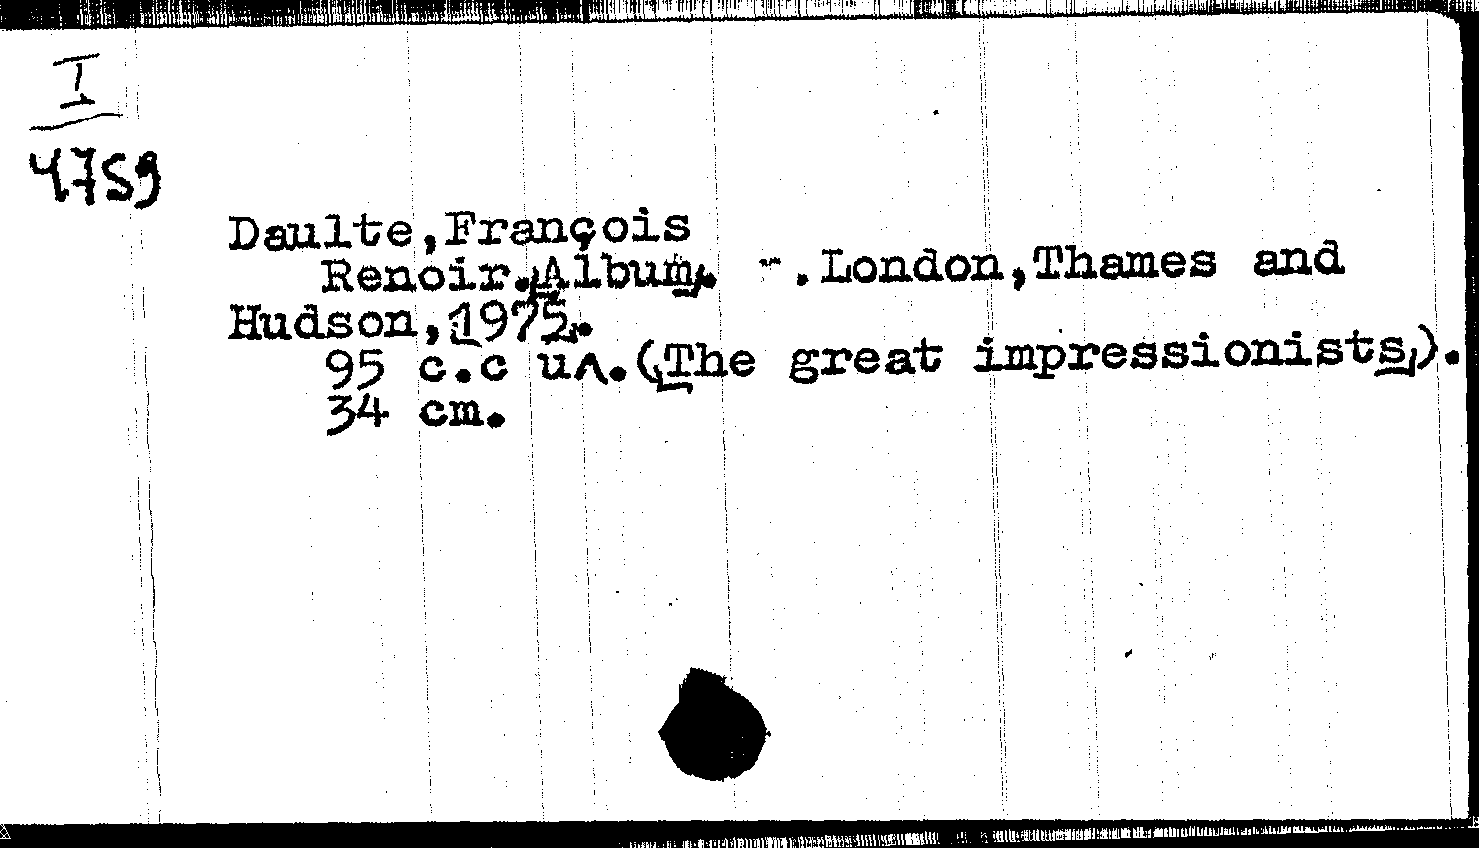 I
4759
Daulte,François
Renoir.Album. -.London,Thames and
Hudson,1975.
95 c.c ил.(The great impressionists).
34 cm.